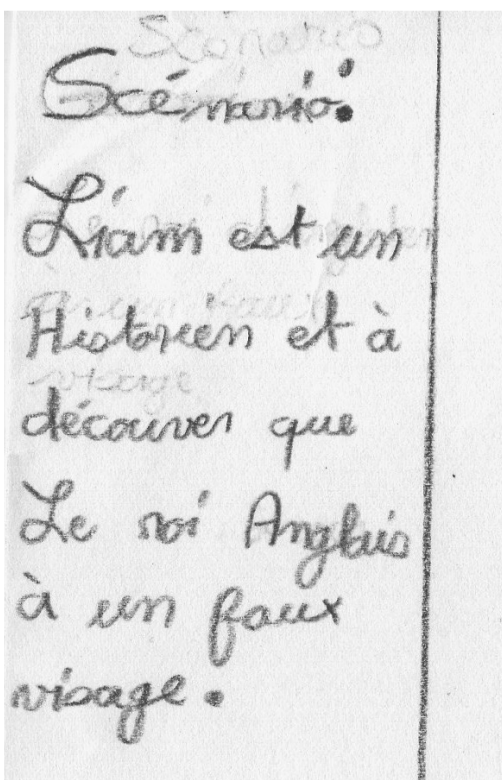 Scénario:
Liam est un
Historien et à
découver que
Le roi Anglais
à un faux
visage.